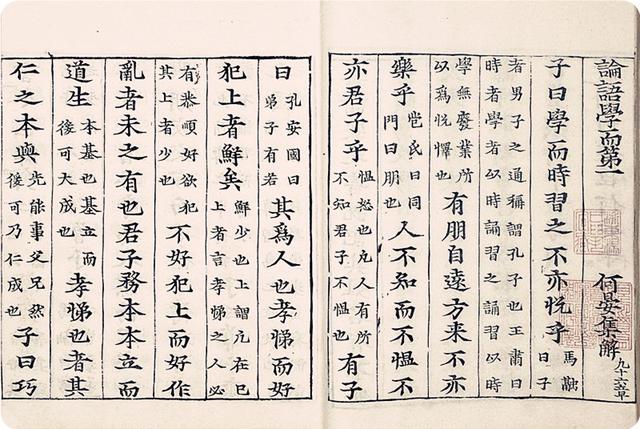 論語學而第一 何晏集解
子曰學而時習之不亦悅乎馬融曰子
者男子之通稱謂孔子也王肅曰時者學者以時誦習之誦習以時
學無廢業所以爲悅懌也有朋自遠方来不亦
樂乎苞氏曰同門曰朋也人不知而不愠不
亦君子乎愠怒也凢人有所不知君子不愠也有子
曰孔安國曰弟子有若其爲人也孝悌而好
犯上者鮮矣鮮少也上謂凢在己上者言孝悌之人必
有恭順好欲犯其上者少也不好犯上而好作
亂者未之有也君子務本本立而
道生本基也基立而後可大成也孝悌也者其
仁之本與先能事父兄然後可乃仁成也子曰巧